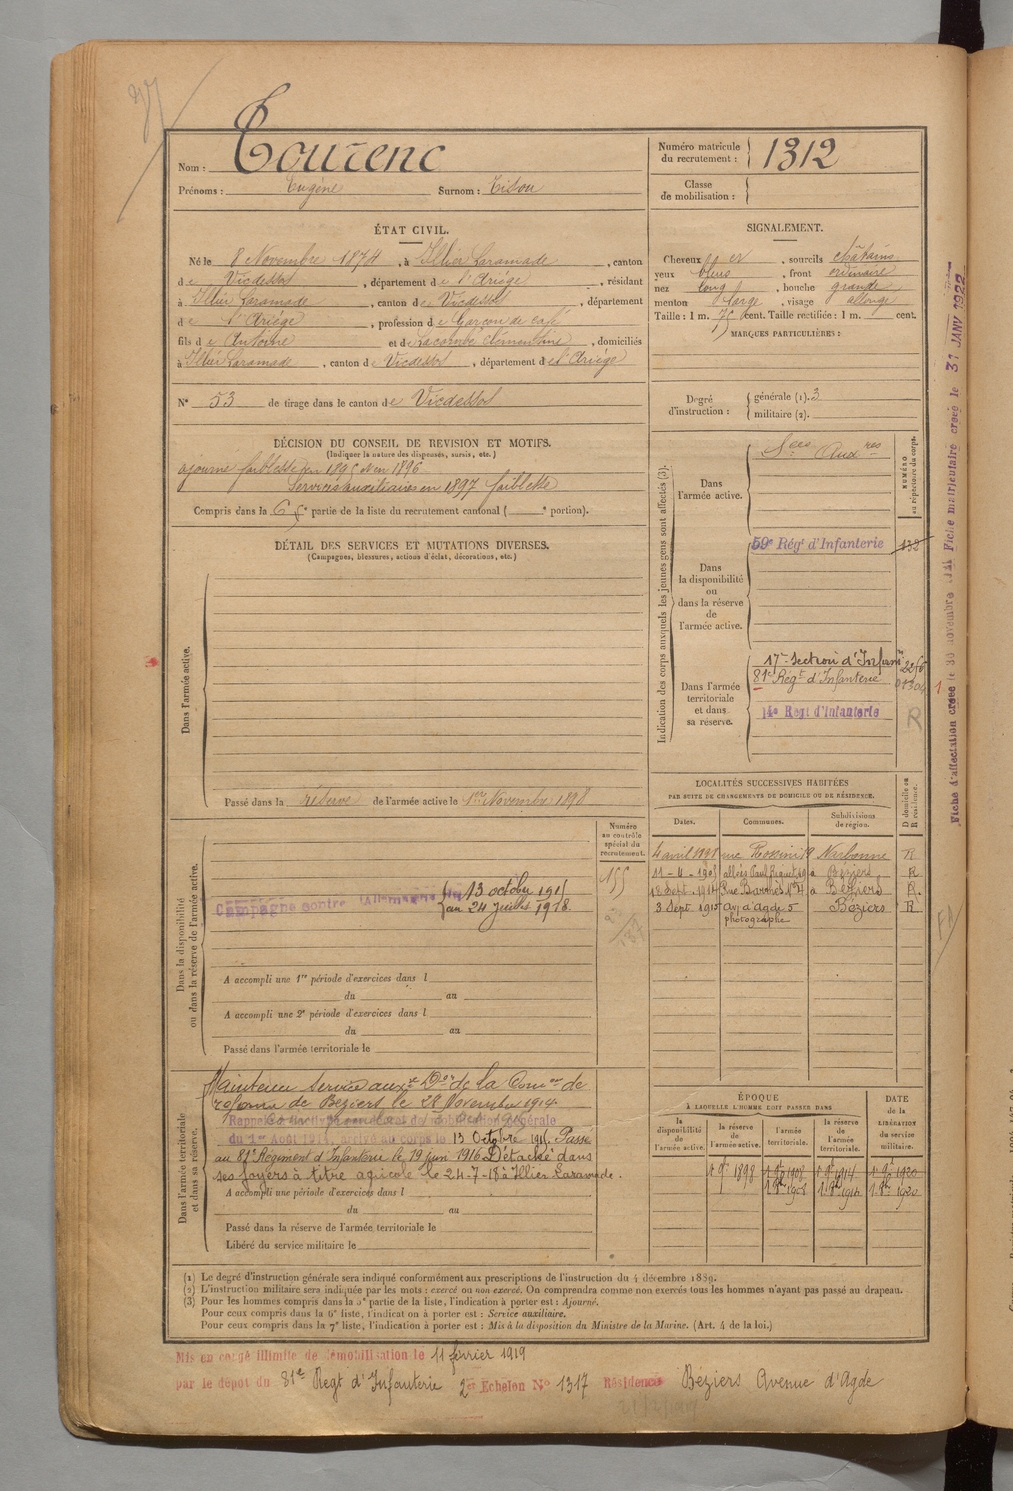 Nom : Tourenc
Prénoms : Eugène Surnom : Titou
Numéro matricule du recrutement : 1312
Classe de mobilisation :
ÉTAT CIVIL.
Né le 8 Novembre 1874, à Illier Laramade, canton
de Vicdessos, département de l'Ariége, résidant
à Illier Laramade, canton de Vicdessos, département
de l'Ariége, profession de Garçon de café
fils de Antoine et de Lacombe Clémentine, domiciliés
à Illier Laramade, canton de Vicdessos, département de l'Ariége
N° 53 de tirage dans le canton de Vicdessos
SIGNALEMENT.
Cheveux et, sourcils châtains
yeux bleus, front ordinaire
nez long, bouche grande
menton large, visage allongé
Taille : 1 m. 75 cent. Taille rectifiée : 1 m. cent.
MARQUES PARTICULIÈRES :
Degré d'instruction : générale (1). 3
militaire (2).
DÉCISION DU CONSEIL DE REVISION ET MOTIFS.
(Indiquer la nature des dispenses, sursis, etc.)
ajourné faiblesse en 1895 et en 1896
Services auxiliaires en 1897 faiblesse
Compris dans la 6e partie de la liste du recrutement cantonal ( e portion).
DÉTAIL DES SERVICES ET MUTATIONS DIVERSES.
(Campagnes, blessures, actions d'éclat, décorations, etc.)
Dans l'armée active.
Passé dans la réserve de l'armée active le 1er Novembre 1898
Indication des corps auxquels les jeunes gens sont affectés (3).
NUMÉRO au répertoire du corps.
Dans l'armée active.
Sces Auxres
Dans la disponibilité ou dans la réserve de l'armée active.
59e Régt d'Infanterie 132
Dans l'armée territoriale et dans sa réserve.
17e Section d'Infirmrs
81e Régt d'Infanterie
14e Regt d'Infanterie
R
LOCALITÉS SUCCESSIVES HABITÉES
PAR SUITE DE CHANGEMENTS DE DOMICILE OU DE RÉSIDENCE.
Dates. Communes. Subdivisions de région. D domicile ou R résidence.
4 avril rue Rossini 9 Narbonne R
11-4-1905 allées Paul Riquet à Béziers R
18 Sept. 1914 Rue à Béziers R.
3 Sept. 1915 Av. d'Agde 5 Béziers R
photographe
Numéro au contrôle spécial du recrutement.
155
Dans la disponibilité ou dans la réserve de l'armée active.
Campagne contre l'Allemagne du 13 octobre 1915
au 24 Juillet 1918.
A accompli une 1re période d'exercices dans l
du au
A accompli une 2e période d'exercices dans l
du au
Passé dans l'armée territoriale le
Dans l'armée territoriale et dans sa réserve.
Maintenu Service auxre Don de la Comon de
réforme de Béziers le 28 Novembre 1914
Rappelé à l'activité décret de mobilisation générale
du 1er Août 1914, arrivé au corps le 13 Octobre 1915. Passé
au 81e Régiment d'Infanterie le 19 juin 1916 Détaché dans
ses foyers à titre agricole le 24-7-18 à Illier Laramade.
A accompli une période d'exercices dans l
du au
Passé dans la réserve de l'armée territoriale le
Libéré du service militaire le
ÉPOQUE
À LAQUELLE L'HOMME DOIT PASSER DANS
la disponibilité de l'armée active. la réserve de l'armée active. l'armée territoriale. la réserve de l'armée territoriale.
DATE de la LIBÉRATION du service militaire.
1. 9e 1898 1. 9e 1908 1. 9e 1914 1. 9e 1920
1. 8e 1908 1. 8e 1914 1. 8e 1920
(1) Le degré d'instruction générale sera indiqué conformément aux prescriptions de l'instruction du 4 décembre 1889.
(2) L'instruction militaire sera indiquée par les mots : exercé ou non exercé. On comprendra comme non exercés tous les hommes n'ayant pas passé au drapeau.
(3) Pour les hommes compris dans la 5e partie de la liste, l'indication à porter est : Ajourné.
Pour ceux compris dans la 6e liste, l'indication à porter est : Service auxiliaire.
Pour ceux compris dans la 7e liste, l'indication à porter est : Mis à la disposition du Ministre de la Marine. (Art. 4 de la loi.)
Mis en congé illimité de démobilisation le 11 février 1919
par le dépôt du 81e Regt d'Infanterie 2e Echelon N° 1317 Résidence Béziers Avenue d'Agde
Fiche d'affectation créée le 30 novembre Fiche matriculaire créée le 31 JANV 1922